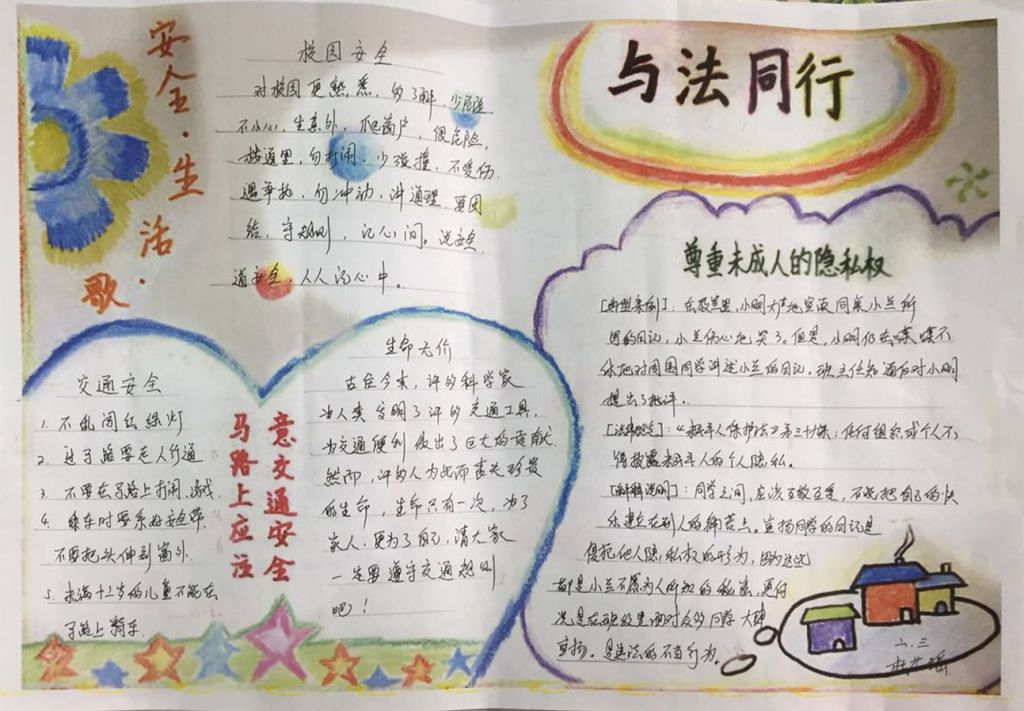 安全·生活·歌
校园安全
对校园更熟悉,多了解,少危险
不小心,生意外,爬窗户,很危险,
楼道里,勿打闹,少碰撞,不受伤
遇争执,勿冲动,讲道理,要团
结,守规则,记心间。说安全
道安全,人人记心中。
与法同行
尊重未成人的隐私权
[典型案例]:在教室里,小明大声地宣读同桌小兰所
写的日记,小兰伤心地哭了。但是,小明仍在喋喋不
休地对周围同学讲述小兰的日记。班主任知道后对小明
提出了批评。
[法律规定]:《未成年人保护法》第三十条:任何组织或个人不
得披露未成年人的个人隐私。
[解释说明]:同学之间,应该互敬互爱,不能把自己的快
乐建立在别人的痛苦点。宣扬同学的日记是
侵犯他人隐私权的行为,因为这些
都是小兰不愿为人所知的秘密,更何
况是在班级里面对众多同学大肆
宣扬。是违法的不当行为。
交通安全
1. 不乱闯红绿灯
2. 过马路要走人行通
3. 不要在马路上打闹、游戏
4. 乘车时要系好安全带,
不要把头伸到窗外.
5. 未满十二岁的儿童不能在
马路上骑车.
马路上应注
意交通安全
生命无价
古往今来,许多科学家
为人类发明了许多交通工具,
为交通便利做出了巨大的贡献
然而,许多人为此而丧失珍贵
的生命,生命只有一次,为了
家人,更为了自己,请大家
一定要遵守交通规则
吧!
六.三